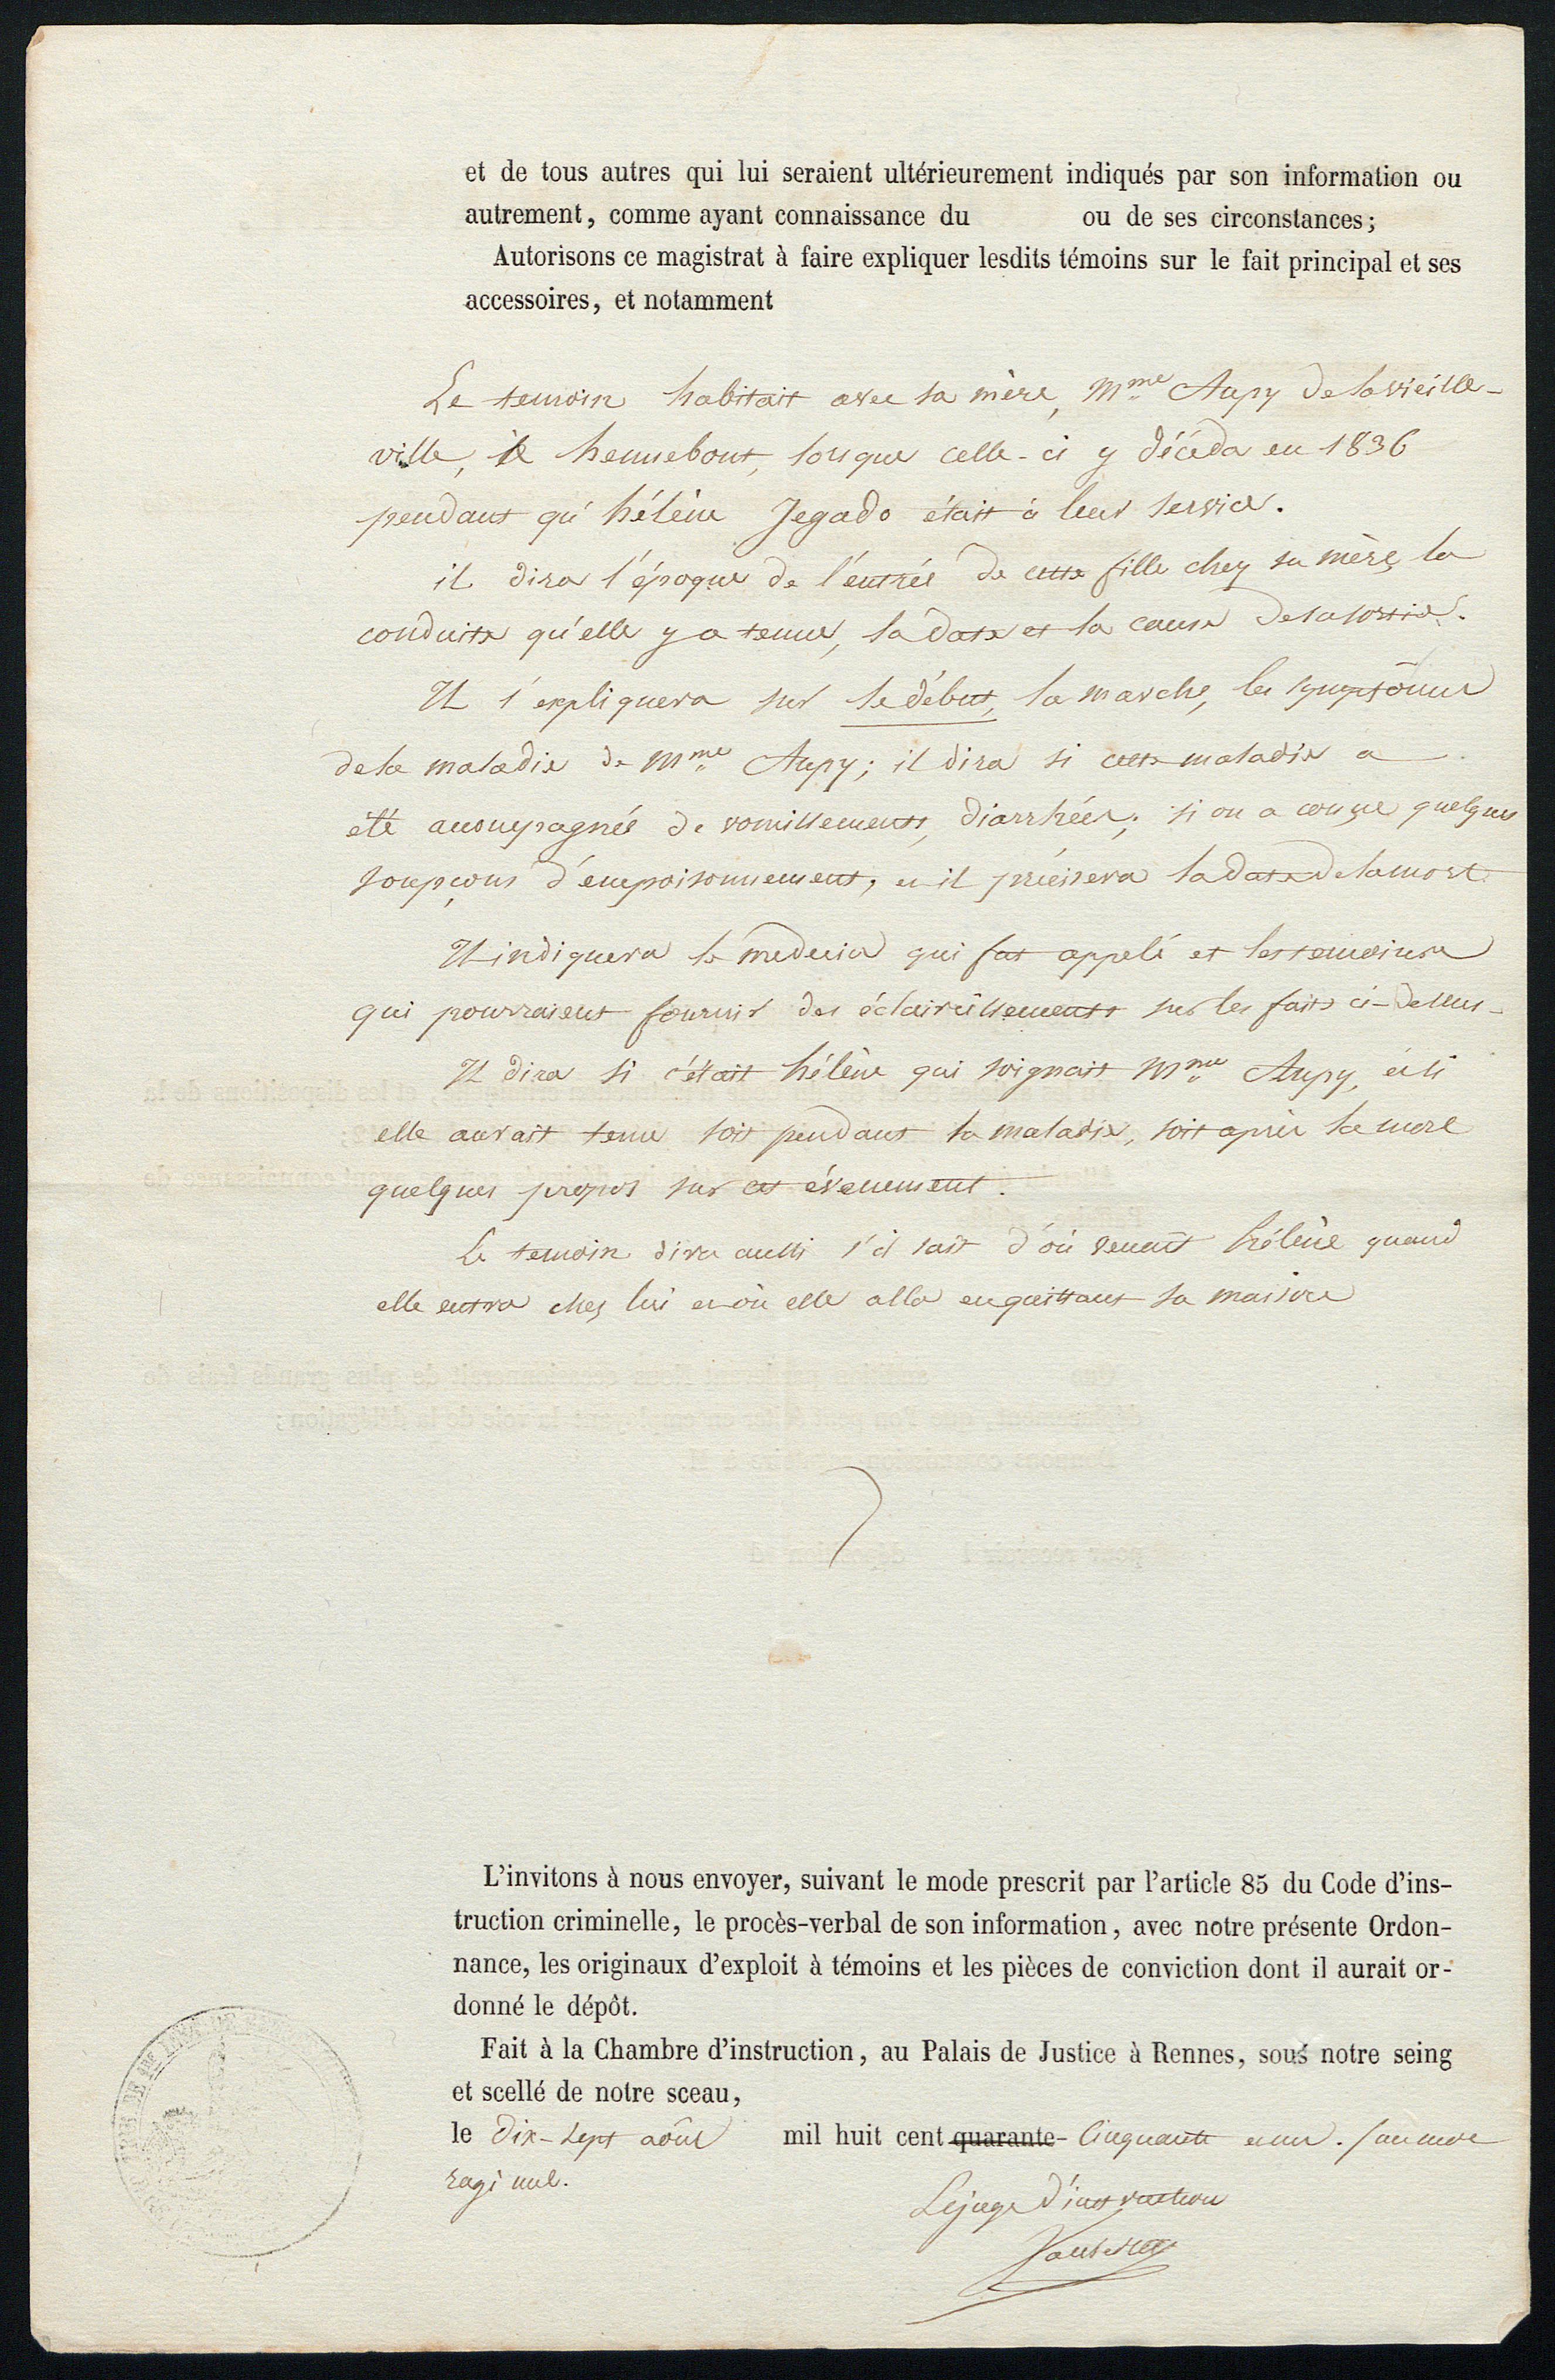 et de tous autres qui lui seraient ultérieurement indiqués par son information ou
autrement, comme ayant connaissance du ou de ses circonstances;
Autorisons ce magistrat à faire expliquer lesdits témoins sur le fait principal et ses
accessoires, et notamment
Le temoin habitait avec sa mère, Mme Aupy de la vieille-
ville, à hennebont, lorsque celle-ci y décéda en 1836
pendant qu'hélène Jegado était à leur service.
il dira l'époque de l'entrée de cette fille chez sa mère, la
conduite qu'elle y a tenue, la date et la cause de sa sortie.
Il s'expliquera sur le début, la marche, les symptômes
de la maladie de Mme Aupy; il dira si cette maladie a
été accompagnée de vomissements, diarrhées; si on a conçu quelques
soupçons d'empoisonnement, et il précisera la date de la mort.
Il indiquera le medecin qui fut appelé et les temoins
qui pourraient fournir des éclaircissements sur les faits ci-dessus-
Il dira si c'était hélène qui soignait Mme Aupy, et si
elle aurait tenu soit pendant la maladie, soit après la mort
quelques propos sur cet évenement.
Le temoin dira aussi s'il sait d'où venait hélène quand
elle entra chez lui et où elle alla en quittant sa maison
L'invitons à nous envoyer, suivant le mode prescrit par l'article 85 du Code d'ins-
truction criminelle, le procès-verbal de son information, avec notre présente Ordon-
nance, les originaux d'exploit à témoins et les pièces de conviction dont il aurait or-
donné le dépôt.
Fait à la Chambre d'instruction, au Palais de Justice à Rennes, sous notre seing
et scellé de notre sceau,
le dix-sept août mil huit cent quarante- Cinquante et un. un mot
rayé nul.
Le juge d'instruction